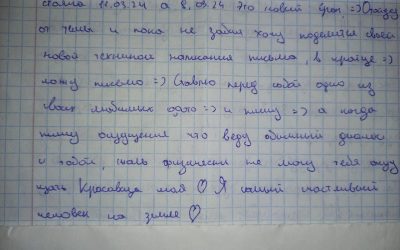 11.03.24 а 8.03.24 это новый =) Отойду
от темы и пока не забыл хочу поделится своей
новой техникой написания письма, в кратце =)
пишу письмо =) Ставлю перед собой одно из
твоих любимых фото =) и пишу =) а когда
пишу ощущение что веду обычный диалог
с тобой, жаль физически не могу тебя ощу
щать Красавица моя ♡ Я самый счастливый
человек на земле ♡